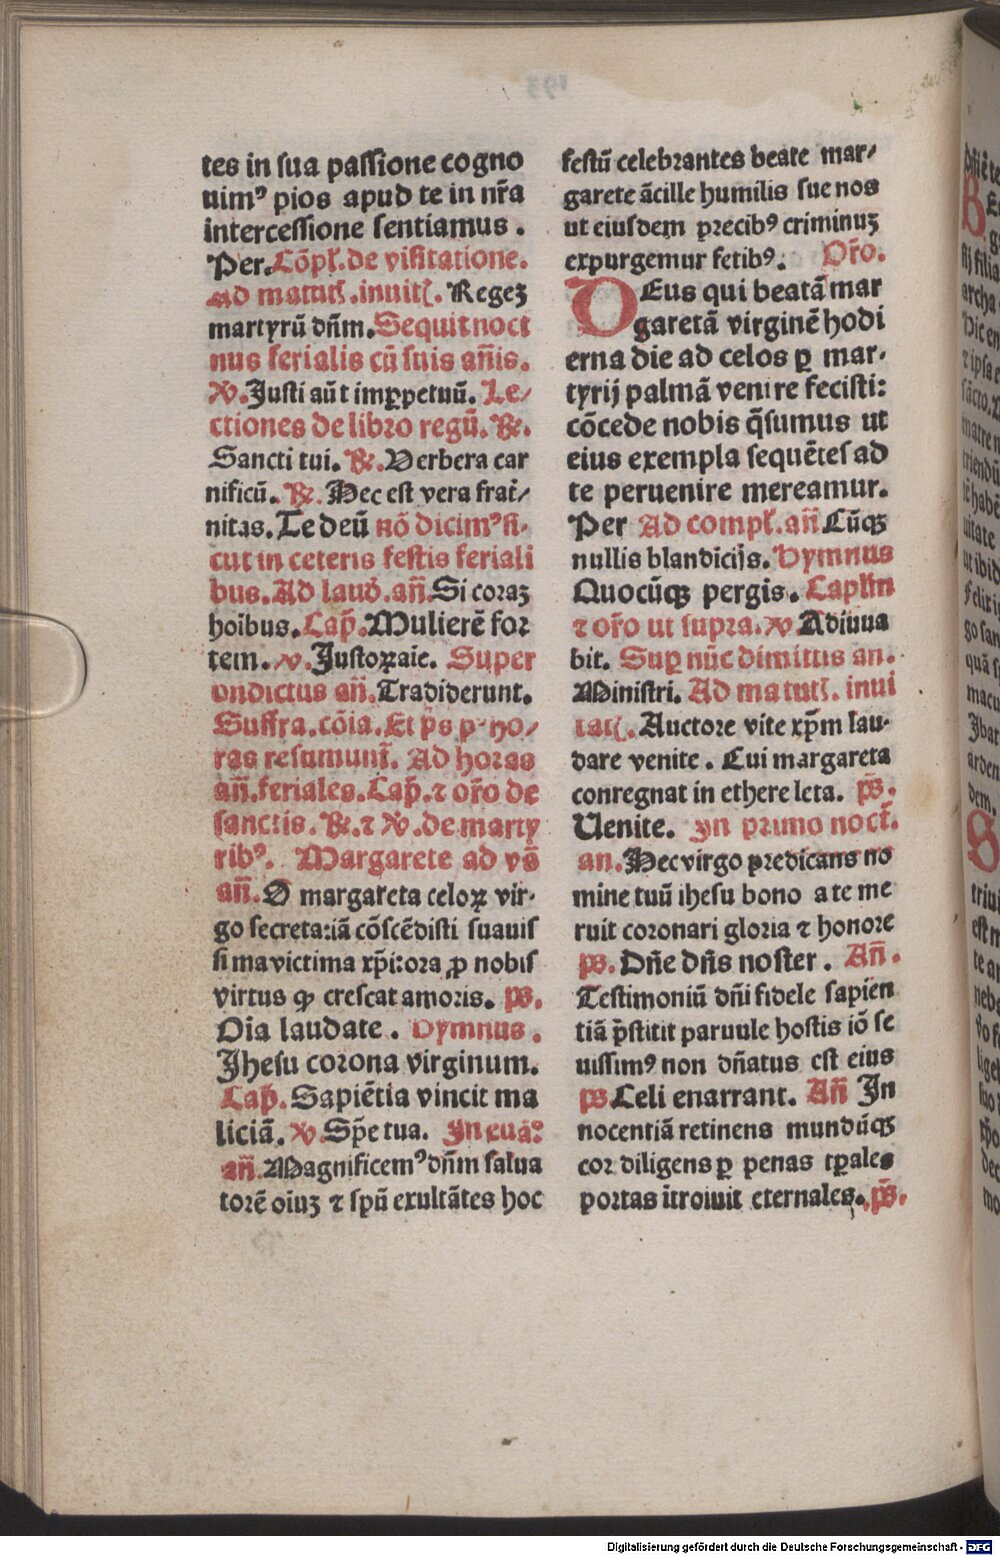 tes in sua passione cogno
uimꝰ pios apud te in nr̄a
intercessione sentiamus .
Per. Cōpl̄. de visitatione.
Ad matutꝭ. inuitꝭ. Regeꝫ
martyrū dn̄m. Sequit noct
nus ferialis cū suis an̄is.
℣. Justi aūt imꝑpetuū. Le⸗
ctiones de libro regū. ℟.
Sancti tui. ℟. Verbera car
nificū. ℟. Hec est vera frat̄⸗
nitas. Te deū nō dicimꝰ si⸗
cut in ceteris festis feriali
bus. Ad laud̄. an̄. Si coraꝫ
hoībus. Cap̄. Mulierē for
tem. ℣. Justoꝝ aīe. Super
ondictus an̄. Tradiderunt.
Suffra. cōia. Et p̄s p⸗ ho⸗
ras resumunt̄. Ad horas
an̄. feriales. Cap̄. ⁊ or̄o de
sanctis. ℟. ⁊ ℣. de marty
ribꝰ. Margarete ad vs̄
an̄. O margareta celoꝝ vir⸗
go secretariā cōscēdisti suauis
sima victima xp̄i: ora ꝓ nobis
virtus ꝙ crescat amoris. ps.
Oīa laudate . Hymnus .
Jhesu corona virginum.
Cap̄. Sapiētia vincit ma
liciā. ℣. Sp̄e tua. In euāꝫ
an̄. Magnificemꝰ dn̄m salua
torē oīuꝫ ⁊ spū exultātes hoc
festū celebrantes beate mar⸗
garete ācille humilis sue nos
ut eiusdem precibꝰ criminuꝫ
expurgemur fetibꝰ. Or̄o.
DEus qui beatā mar
garetā virginē hodi
erna die ad celos ꝑ mar⸗
tyrij palmā venire fecisti:
cōcede nobis q̄sumus ut
eius exempla sequētes ad
te peruenire mereamur.
Per Ad compl̄. an̄ Cūqꝫ
nullis blandicijs. Hymnus
Quocūqꝫ pergis. Caplm̄
⁊ or̄o ut supra. ℣. Adiuua
bit. Suꝑ nūc dimittis an.
Ministri. Ad matutꝭ. inui
tatꝭ. Auctore vite xp̄m lau⸗
dare venite . Cui margareta
conregnat in ethere leta. ps̄.
Uenite. In primo noct̄.
an. Hec virgo predicans no
mine tuū ihesu bono a te me
ruit coronari gloria ⁊ honore
ps. Dn̄e dn̄s noster . An̄ .
Testimoniū dn̄i fidele sapien
tiā p̄stitit paruule hostis iō se
uissimꝰ non dn̄atus est eius
ps Celi enarrant. An̄ In
nocentiā retinens mundūqꝫ
cor diligens ꝑ penas tꝑales
portas ītroiuit eternales. ps̄.
Digitalisierung gefördert durch die Deutsche Forschungsgemeinschaft - DFG